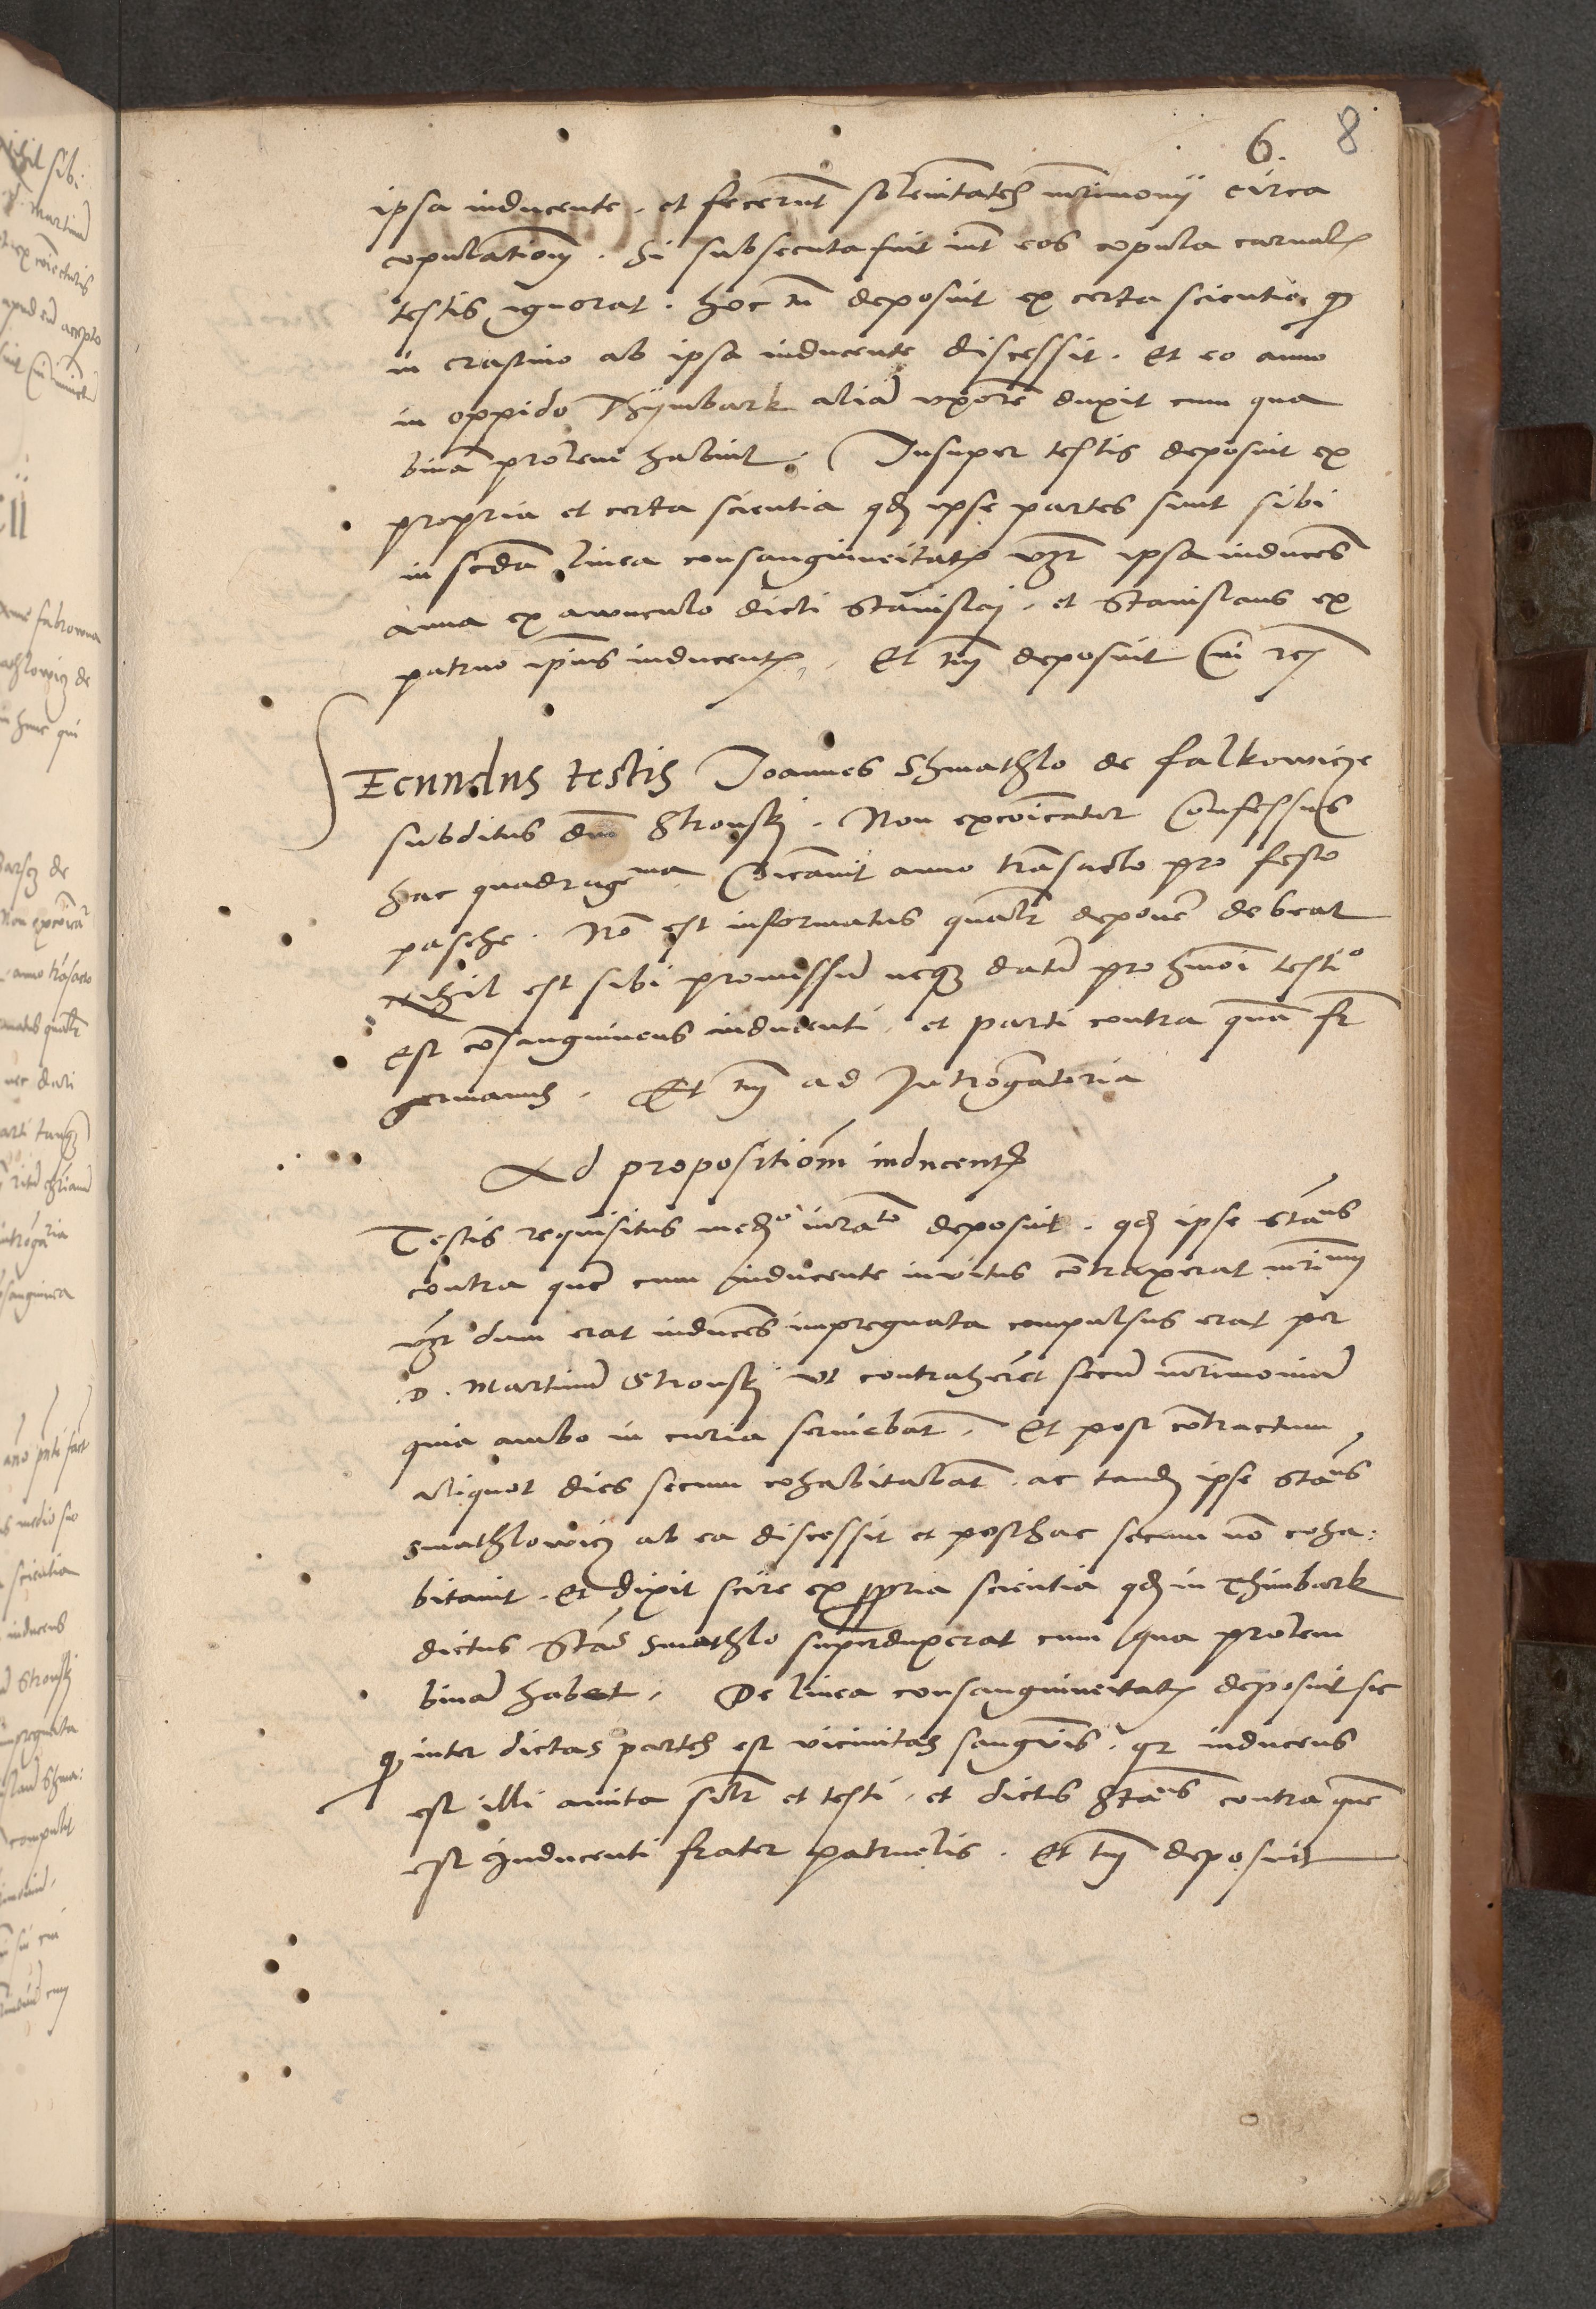 6. 8
ipsa inducente. et fecerūt solēnitatē mrīmonij circa
copulationē. Si subsecuta fuit int eos copula carnalis
testis ignorat. Hoc tn̄ deposuit ex certa scientia q
in crastino ab ipsa inducente discessit. Et eo anno
in oppido Thijmbark aliā uxorē duxit cum qua
binā prolem habuit. Insuper testis deposuit ex
propria et certa scientia qd ipse partes sunt sibi
in scdā linea consanguineitatis vzt ipsa inducēs
Anna ex awunculo dicti Stanislaj. et Stanislaus ex
patruo ipsius inducentis. Et tm̄ deposuit
SEcundus testis Joannes Shmathlo de Falkowicze
subditus dnī Stronskj. Non excōicatur Confessus
hac quadragema Cōicauit anno trāsacto pro festo
pasche. Nō est informatus qualr deponē debeat
Nihil est sibi promissū neqz datū pro hmōi testio
Est cōsanguineus inducenti. et parti contra quā fr
germanus. Et tm̄ ad Introgatoria
Ad propositionē inducentis
Testis requisitus medo iurato deposuit. qd ipse Stāus
contra quē cum inducente inuitus cōtraxerat mrīmm
vzt dum erat inducēs impregnata compulsus erat per
D. Martinū Stronskj vt contraheret secū mrīmoniū
quia ambo in curia seruiebāt. Et post cōtractum
aliquot dies secum cohabitabāt. ac tandē ipse Stāus
Smathlowicz ab ea discessit et posthac secum nō coha:
bitauit. Et dixit scire ex ppria scientia qd in Thimbark
dictus Stāus Smathlo superduxerat cum qua prolem
binā habet. De linea consanguineitatis deposuit sic
q inter dictas partes est vicinitas sanguīs. qr inducens
est illi amita silr et testi. et dictus Stāus contra quē
est Inducenti frater patruelis. Et tm̄ deposuit